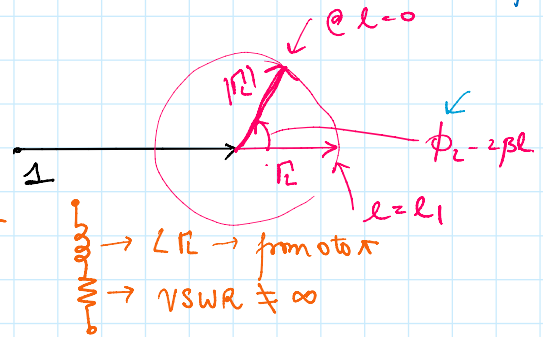 @ l=0
|Γ_L|
ϕ_L-2βl
1
Γ_L
l=l_1
→ ∠Γ_L → from 0 to π
→ VSWR ≠ ∞